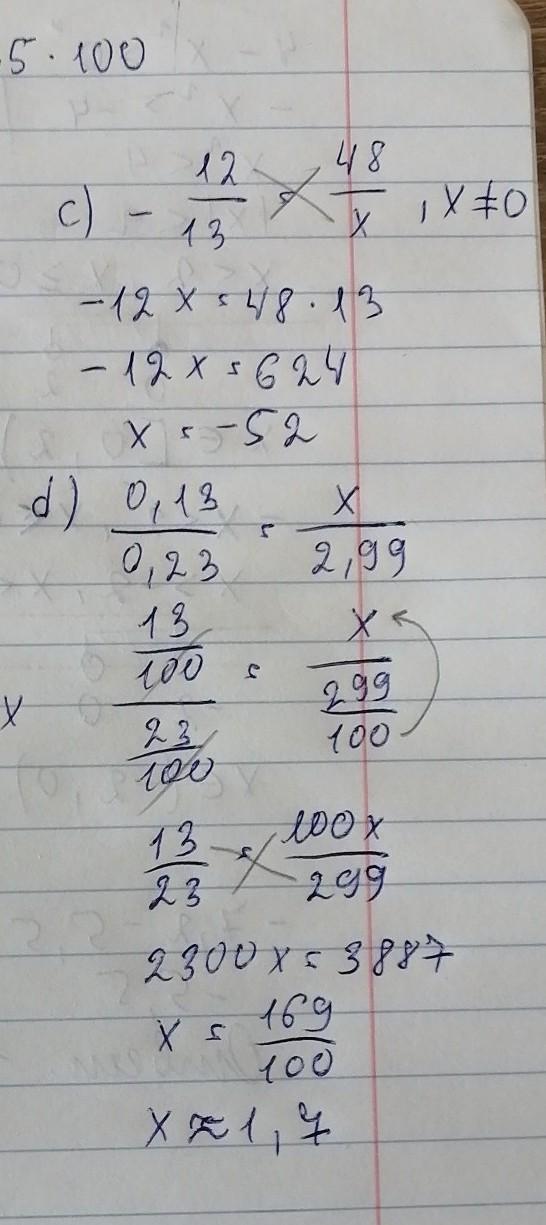 5 · 100
c) - 12/13 = 48/x , x ≠ 0
-12x = 48 · 13
-12x = 624
x = -52
d) 0,13/0,23 = x/2,99
x
(13/100)/(23/100) = x/(299/100)
13/23 = 100x/299
2300x = 3887
x = 169/100
x ≈ 1,7